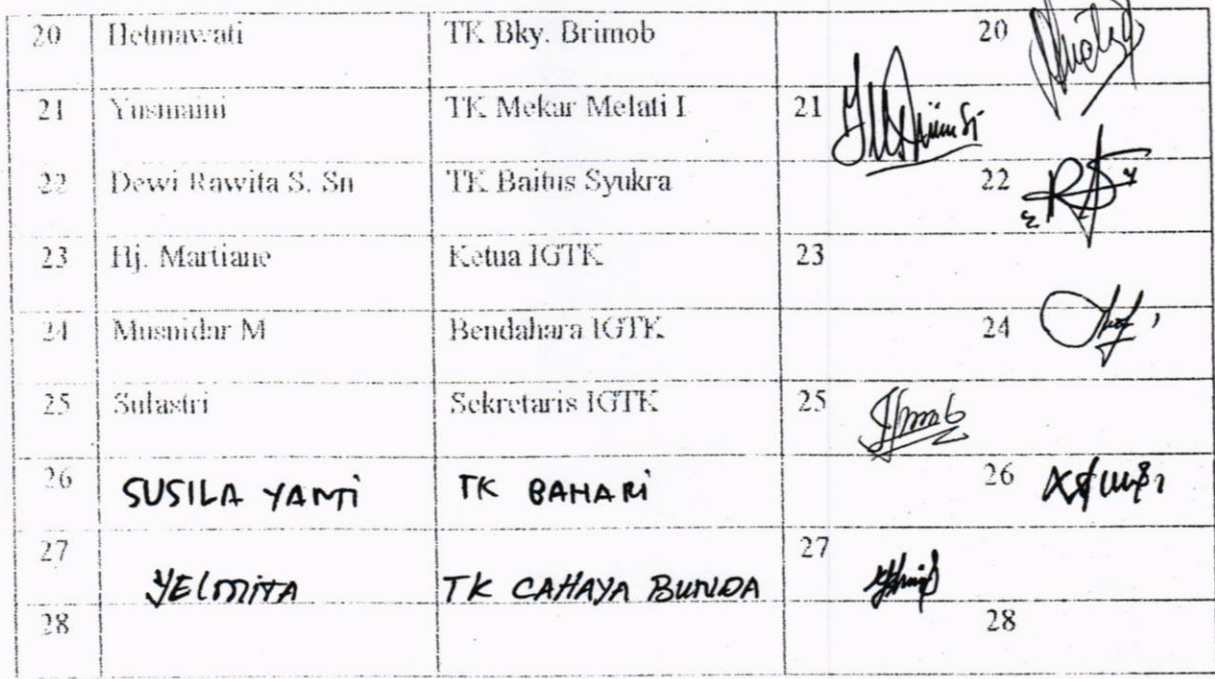 20 Helmawati TK Bky. Brimob 20
21 Yusmaini TK Mekar Melati I 21
22 Dewi Rawita S. Sn TK Baitus Syukra 22
23 Hj. Martiane Ketua IGTK 23
24 Musnidar M Bendahara IGTK 24
25 Sulastri Sekretaris IGTK 25
26 SUSILA YANTI TK BAHARI 26
27 YELMITA TK CAHAYA BUNDA 27
28 28